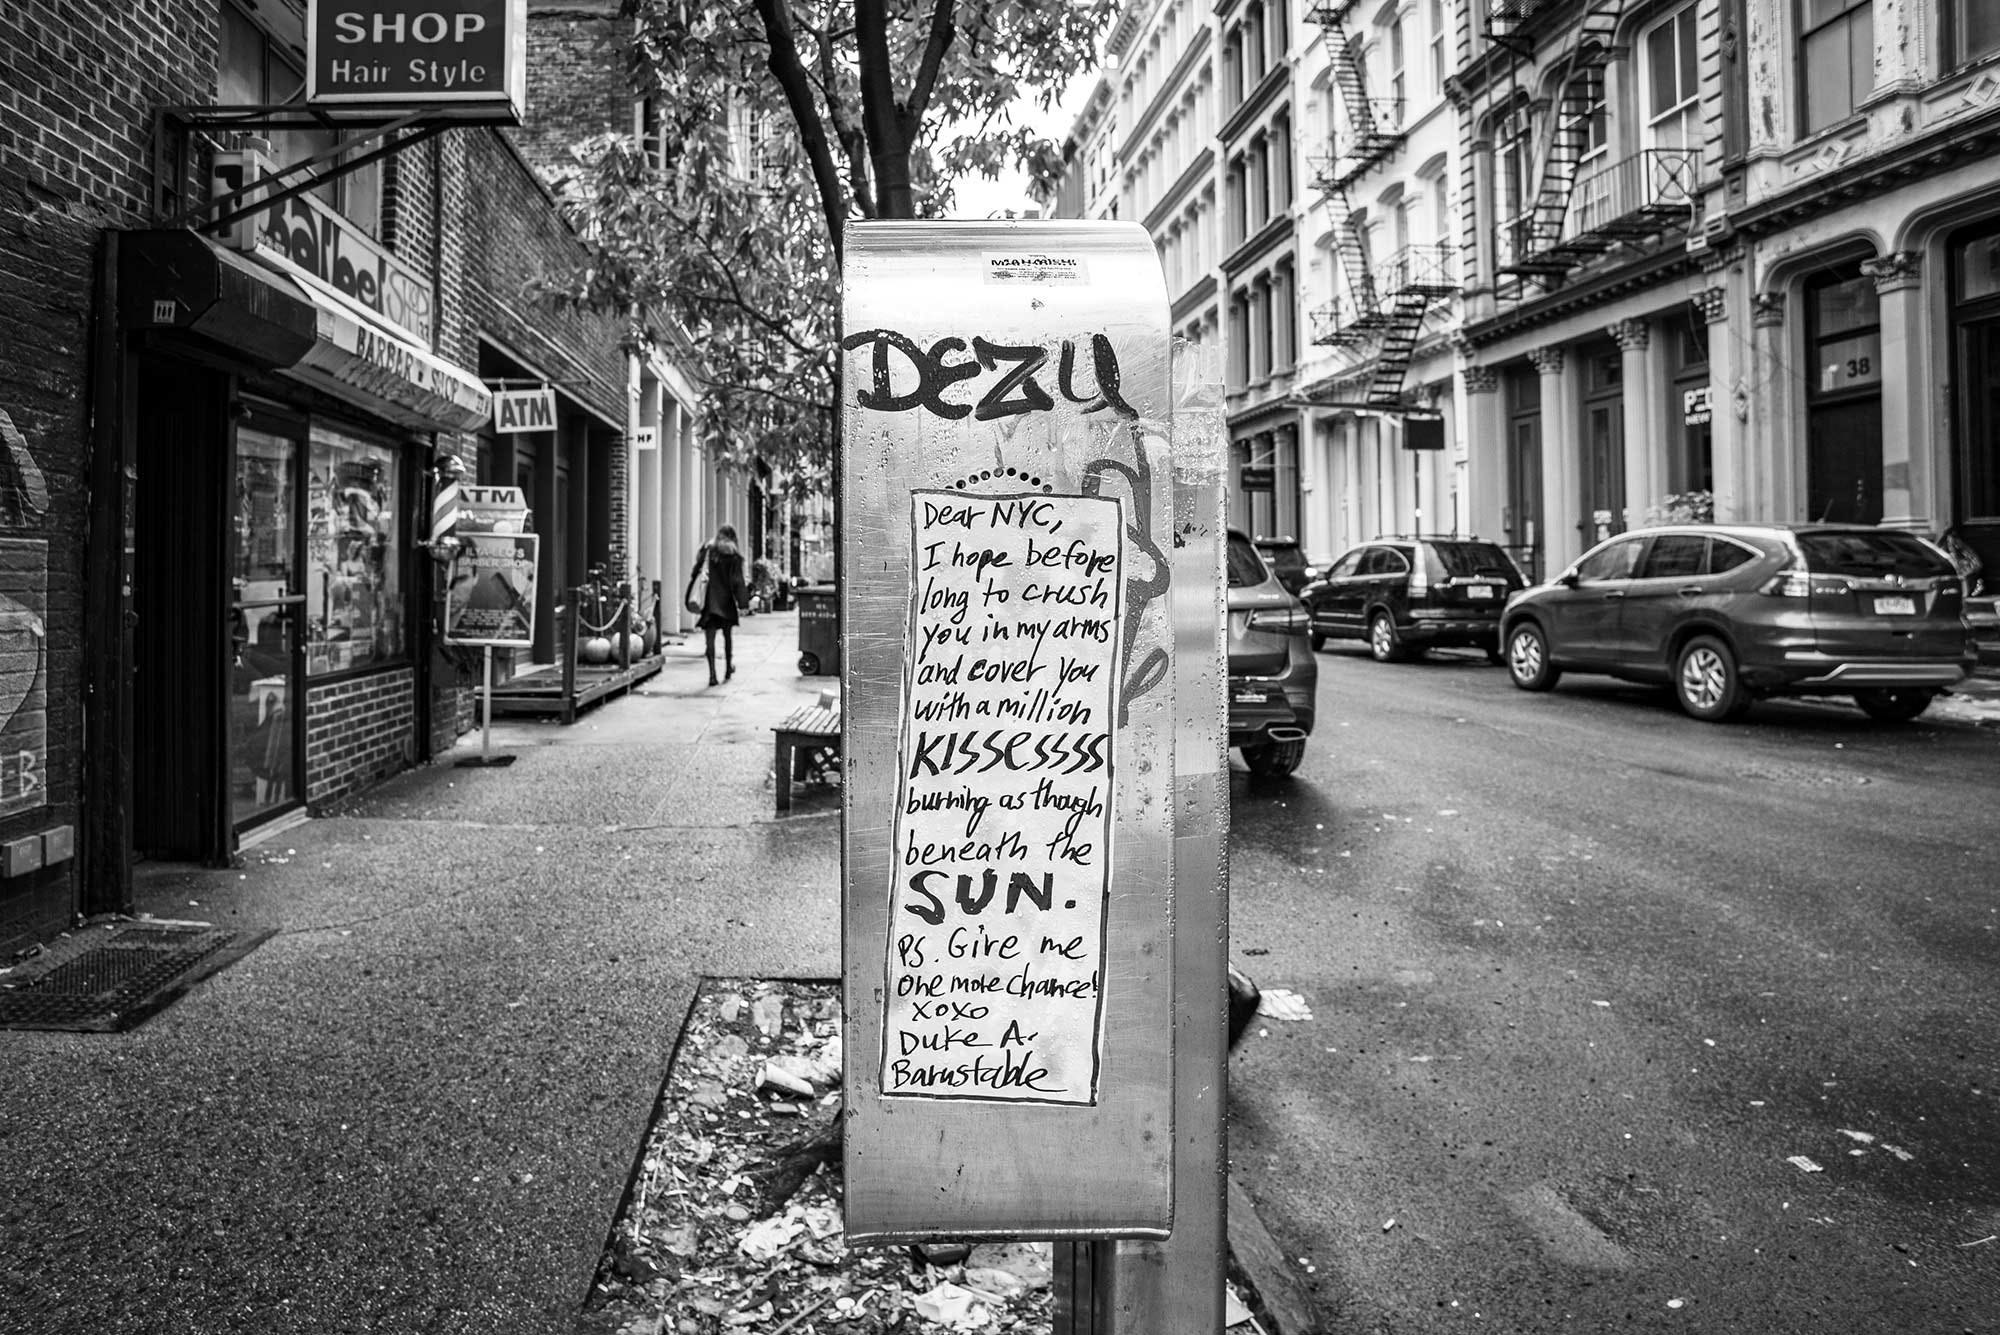 SHOP
Hair Style
BARBER SHOP
ATM
ATM
HF
ILYA LEO'S
BARBER SHOP
DEZU
Dear NYC,
I hope before
long to crush
you in my arms
and cover you
with a million
KISSESSSS
burning as though
beneath the
SUN.
PS. Give me
one more chance!
XOXO
Duke A.
Barnstable
38